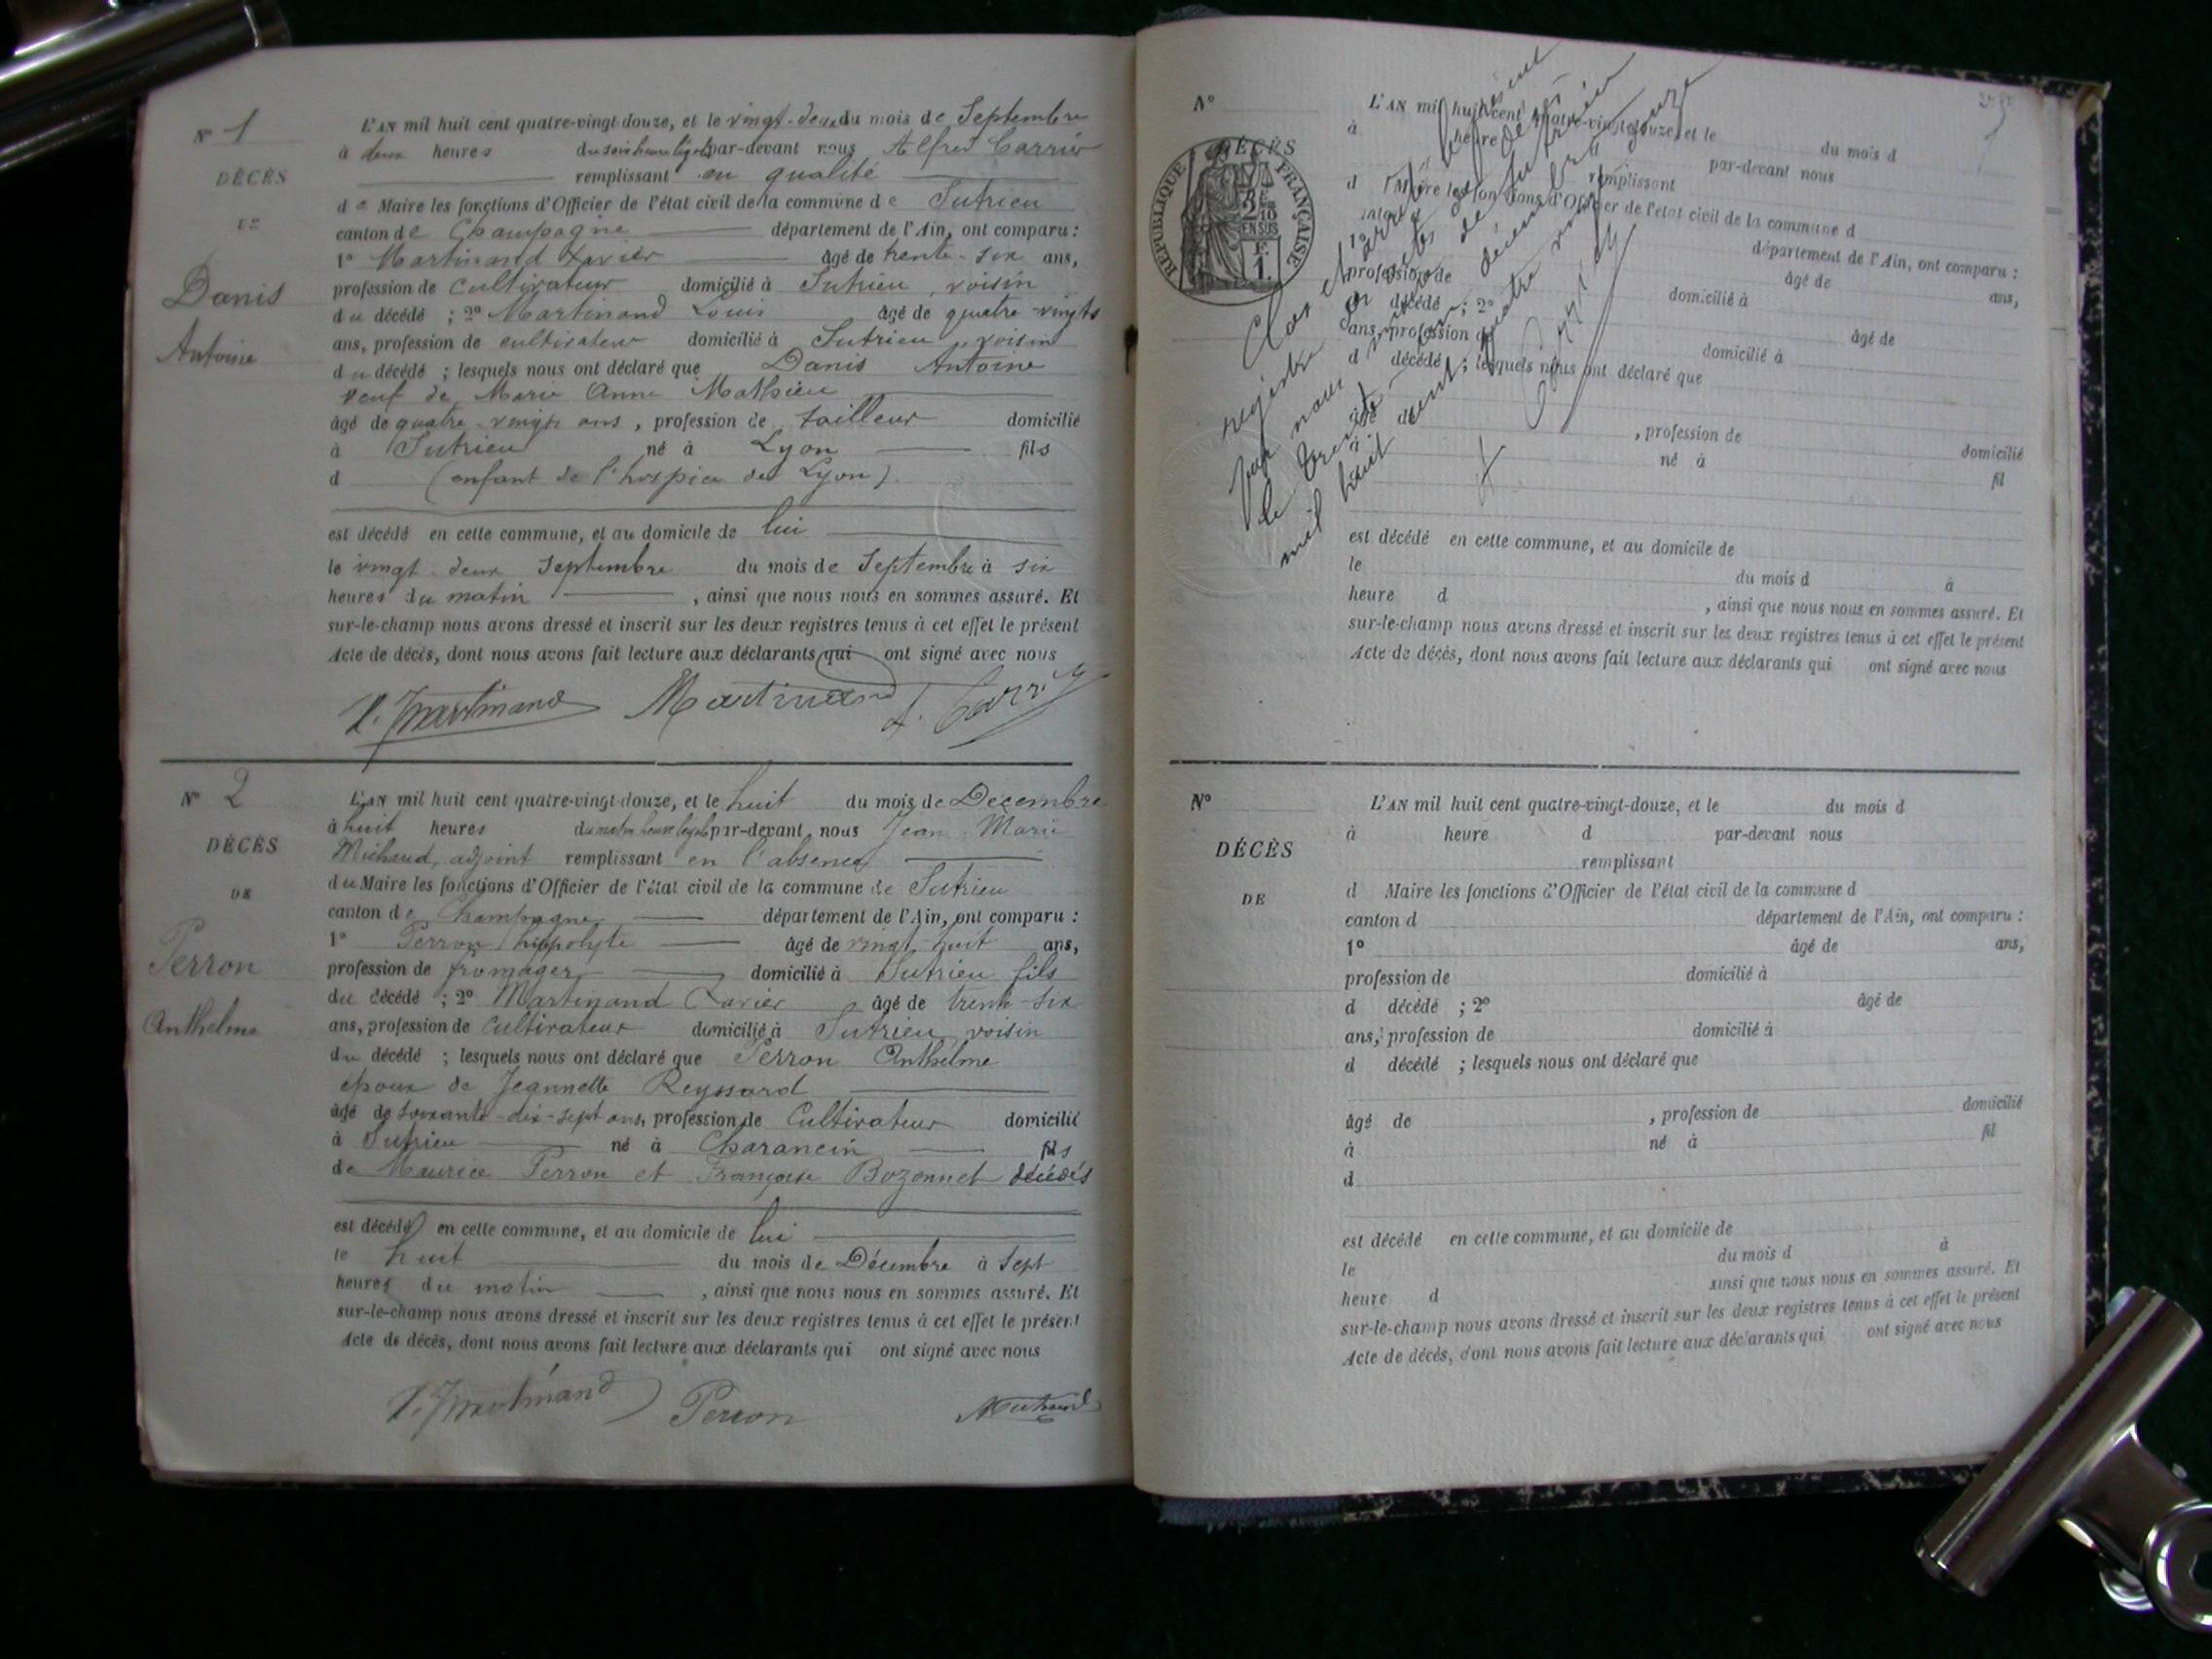 N° 1
DÉCÈS
DE
Danis
Antoine
L'AN mil huit cent quatre-vingt-douze, et le vingt-deux du mois de Septembre
à deux heures du soir heure légale par-devant nous Alfred Carrier
remplissant en qualité
de Maire les fonctions d'Officier de l'état civil de la commune de Sutrieu
canton de Champagne département de l'Ain, ont comparu :
1° Martinand Xavier âgé de trente-six ans,
profession de cultivateur domicilié à Sutrieu, voisin
du décédé ; 2° Martinand Louis âgé de quatre-vingts
ans, profession de cultivateur domicilié à Sutrieu, voisin
du décédé ; lesquels nous ont déclaré que Danis Antoine
veuf de Marie Anne Mathieu
âgé de quatre-vingts ans, profession de tailleur domicilié
à Sutrieu né à Lyon fils
d (enfant de l'hospice de Lyon).
est décédé en cette commune, et au domicile de lui
le vingt-deux Septembre du mois de Septembre à six
heures du matin, ainsi que nous nous en sommes assuré. Et
sur-le-champ nous avons dressé et inscrit sur les deux registres tenus à cet effet le présent
Acte de décès, dont nous avons fait lecture aux déclarants qui ont signé avec nous
X. Martinand Martinand A. Carrier
N° 2
DÉCÈS
DE
Perron
Anthelme
L'AN mil huit cent quatre-vingt-douze, et le huit du mois de Decembre
à huit heures du matin heure légale par-devant nous Jean Marie
Michaud, adjoint remplissant en l'absence
du Maire les fonctions d'Officier de l'état civil de la commune de Sutrieu
canton de Champagne département de l'Ain, ont comparu :
1° Perron hippolyte âgé de vingt-huit ans,
profession de fromager domicilié à Sutrieu fils
du décédé ; 2° Martinand Xavier âgé de trente-six
ans, profession de Cultivateur domicilié à Sutrieu, voisin
du décédé ; lesquels nous ont déclaré que Perron Anthelme
époux de Jeannette Reyssard
âgé de soixante-dix-sept ans, profession de Cultivateur domicilié
à Sutrieu né à Charancin fils
de Maurice Perron et Françoise Bozonnet décédés
est décédé en cette commune, et au domicile de lui
le huit du mois de Décembre à Sept
heures du matin, ainsi que nous nous en sommes assuré. Et
sur-le-champ nous avons dressé et inscrit sur les deux registres tenus à cet effet le présent
Acte de décès, dont nous avons fait lecture aux déclarants qui ont signé avec nous
X. Martinand Perron Michaud
N°
DÉCÈS
RÉPUBLIQUE FRANÇAISE
L'AN mil huit cent quatre-vingt-douze, et le du mois d
à heure par-devant nous
remplissant
d Maire les fonctions d'Officier de l'état civil de la commune d
département de l'Ain, ont comparu :
1° âgé de ans,
profession de domicilié à
d décédé ; 2° âgé de
ans, profession de domicilié à
d décédé ; lesquels nous ont déclaré que
, profession de domicilié
à né à fil
d
est décédé en cette commune, et au domicile de
le du mois d à
heure d , ainsi que nous nous en sommes assuré. Et
sur-le-champ nous avons dressé et inscrit sur les deux registres tenus à cet effet le présent
Acte de décès, dont nous avons fait lecture aux déclarants qui ont signé avec nous
Clos et arrêté le présent
registre des actes de décès
par nous maire de Sutrieu
le trente un décembre
mil huit cent quatre vingt douze
Carrier
N°
DÉCÈS
DE
L'AN mil huit cent quatre-vingt-douze, et le du mois d
à heure d par-devant nous
remplissant
d Maire les fonctions d'Officier de l'état civil de la commune d
canton d département de l'Ain, ont comparu :
1° âgé de ans,
profession de domicilié à
d décédé ; 2° âgé de
ans, profession de domicilié à
d décédé ; lesquels nous ont déclaré que
âgé de , profession de domicilié
à né à fil
d
est décédé en cette commune, et au domicile de
le du mois d à
heure d ainsi que nous nous en sommes assuré. Et
sur-le-champ nous avons dressé et inscrit sur les deux registres tenus à cet effet le présent
Acte de décès, dont nous avons fait lecture aux déclarants qui ont signé avec nous